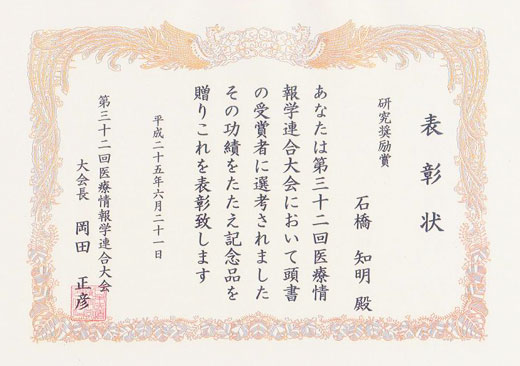 表彰状
研究奨励賞
石橋 知明 殿
あなたは第三十二回医療情
報学連合大会において頭書
の受賞者に選考されました
その功績をたたえ記念品を
贈りこれを表彰致します
平成二十五年六月二十一日
第三十二回医療情報学連合大会
大会長 岡田 正彦